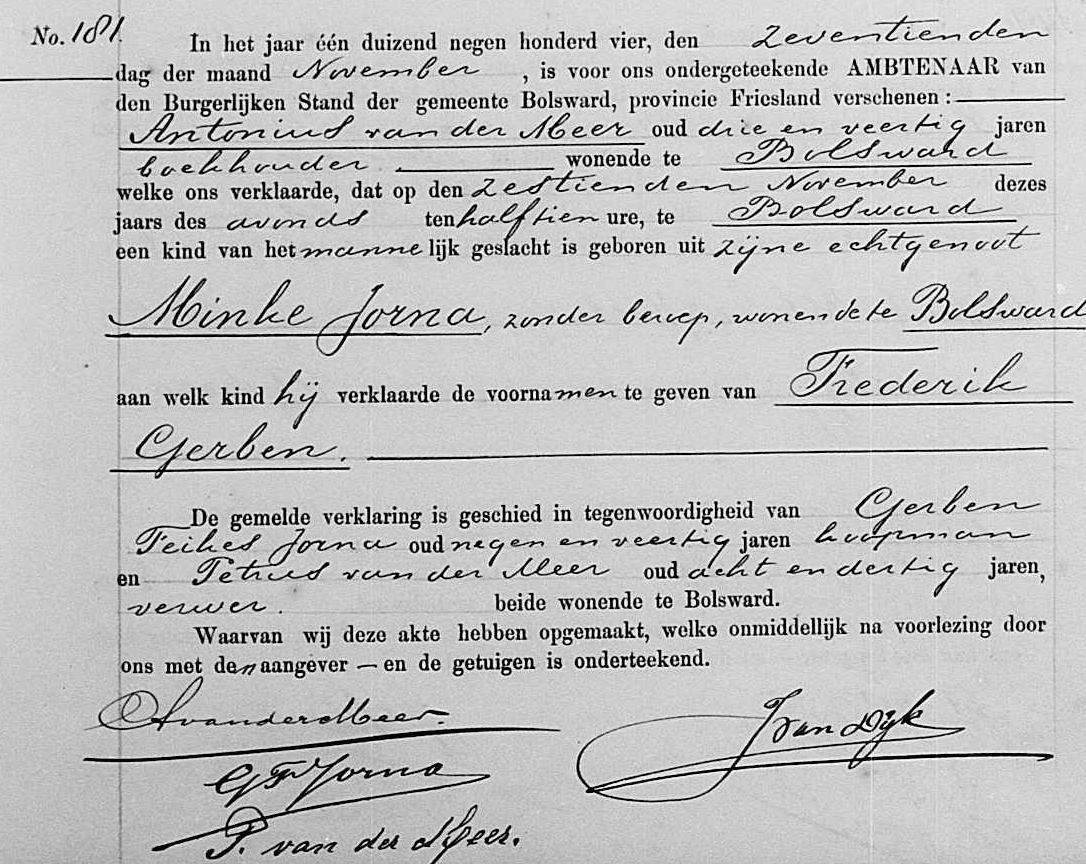 No. 181.
In het jaar één duizend negen honderd vier, den zeventienden
dag der maand November , is voor ons ondergeteekende AMBTENAAR van
den Burgerlijken Stand der gemeente Bolsward, provincie Friesland verschenen :
Antonius van der Meer oud drie en veertig jaren
boekhouder wonende te Bolsward
welke ons verklaarde, dat op den zestienden November dezes
jaars des avonds ten half tien ure, te Bolsward
een kind van het mannelijk geslacht is geboren uit zijne echtgenoot
Minke Jorna, zonder beroep, wonende te Bolsward
aan welk kind hij verklaarde de voornamen te geven van Frederik
Gerben.
De gemelde verklaring is geschied in tegenwoordigheid van Gerben
Feikes Jorna oud negen en veertig jaren koopman
en Petrus van der Meer oud acht en dertig jaren,
verwer. beide wonende te Bolsward.
Waarvan wij deze akte hebben opgemaakt, welke onmiddellijk na voorlezing door
ons met den aangever — en de getuigen is onderteekend.
A van der Meer.
J van Dyk
G F Jorna
P. van der Meer.